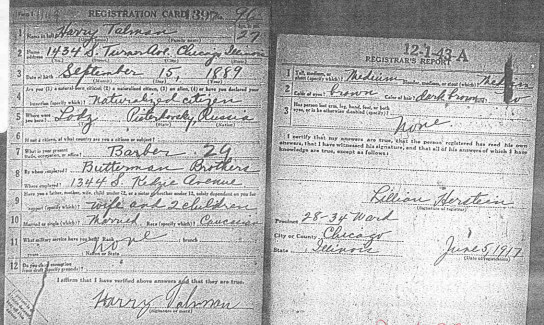 Form 1 REGISTRATION CARD 1392 96
1 Name in full Harry Talman 27
(Given name) (Family name)
2 Home address 1434 S. Turner Ave. Chicago Illinois
(No.) (Street) (City) (State)
3 Date of birth September 15, 1889
(Month) (Day) (Year)
4 Are you (1) a natural-born citizen, (2) a naturalized citizen, (3) an alien, (4) or have you declared your
intention (specify which)? Naturalized citizen
5 Where were you born? Lodz Russia
(Town) (State) (Nation)
6 If not a citizen, of what country are you a citizen or subject?
7 What is your present trade, occupation, or office? Barber 29
8 By whom employed? Butterman Brothers
Where employed? 1344 S. Kedzie Avenue
9 Have you a father, mother, wife, child under 12, or a sister or brother under 12, solely dependent on you for
support (specify which)? wife and 2 children
10 Married or single (which)? Married Race (specify which)? Caucasian
11 What military service have you had? Rank none ; branch
years Nation or State
12 Do you claim exemption
from draft (specify grounds)?
I affirm that I have verified above answers and that they are true.
Harry Talman
(Signature or mark)
12-1-43-A
REGISTRAR'S REPORT
1 Tall, medium, or short (specify which)? Medium Slender, medium, or stout (which)?
2 Color of eyes? brown Color of hair? dark brown
3 Has person lost arm, leg, hand, foot, or both
eyes, or is he otherwise disabled (specify)?
none
I certify that my answers are true, that the person registered has read his own
answers, that I have witnessed his signature, and that all of his answers of which I have
knowledge are true, except as follows:
Lillian Herstein
(Signature of registrar)
Precinct 28-34 Ward
City or County Chicago
State Illinois June 5, 1917
(Date of registration)